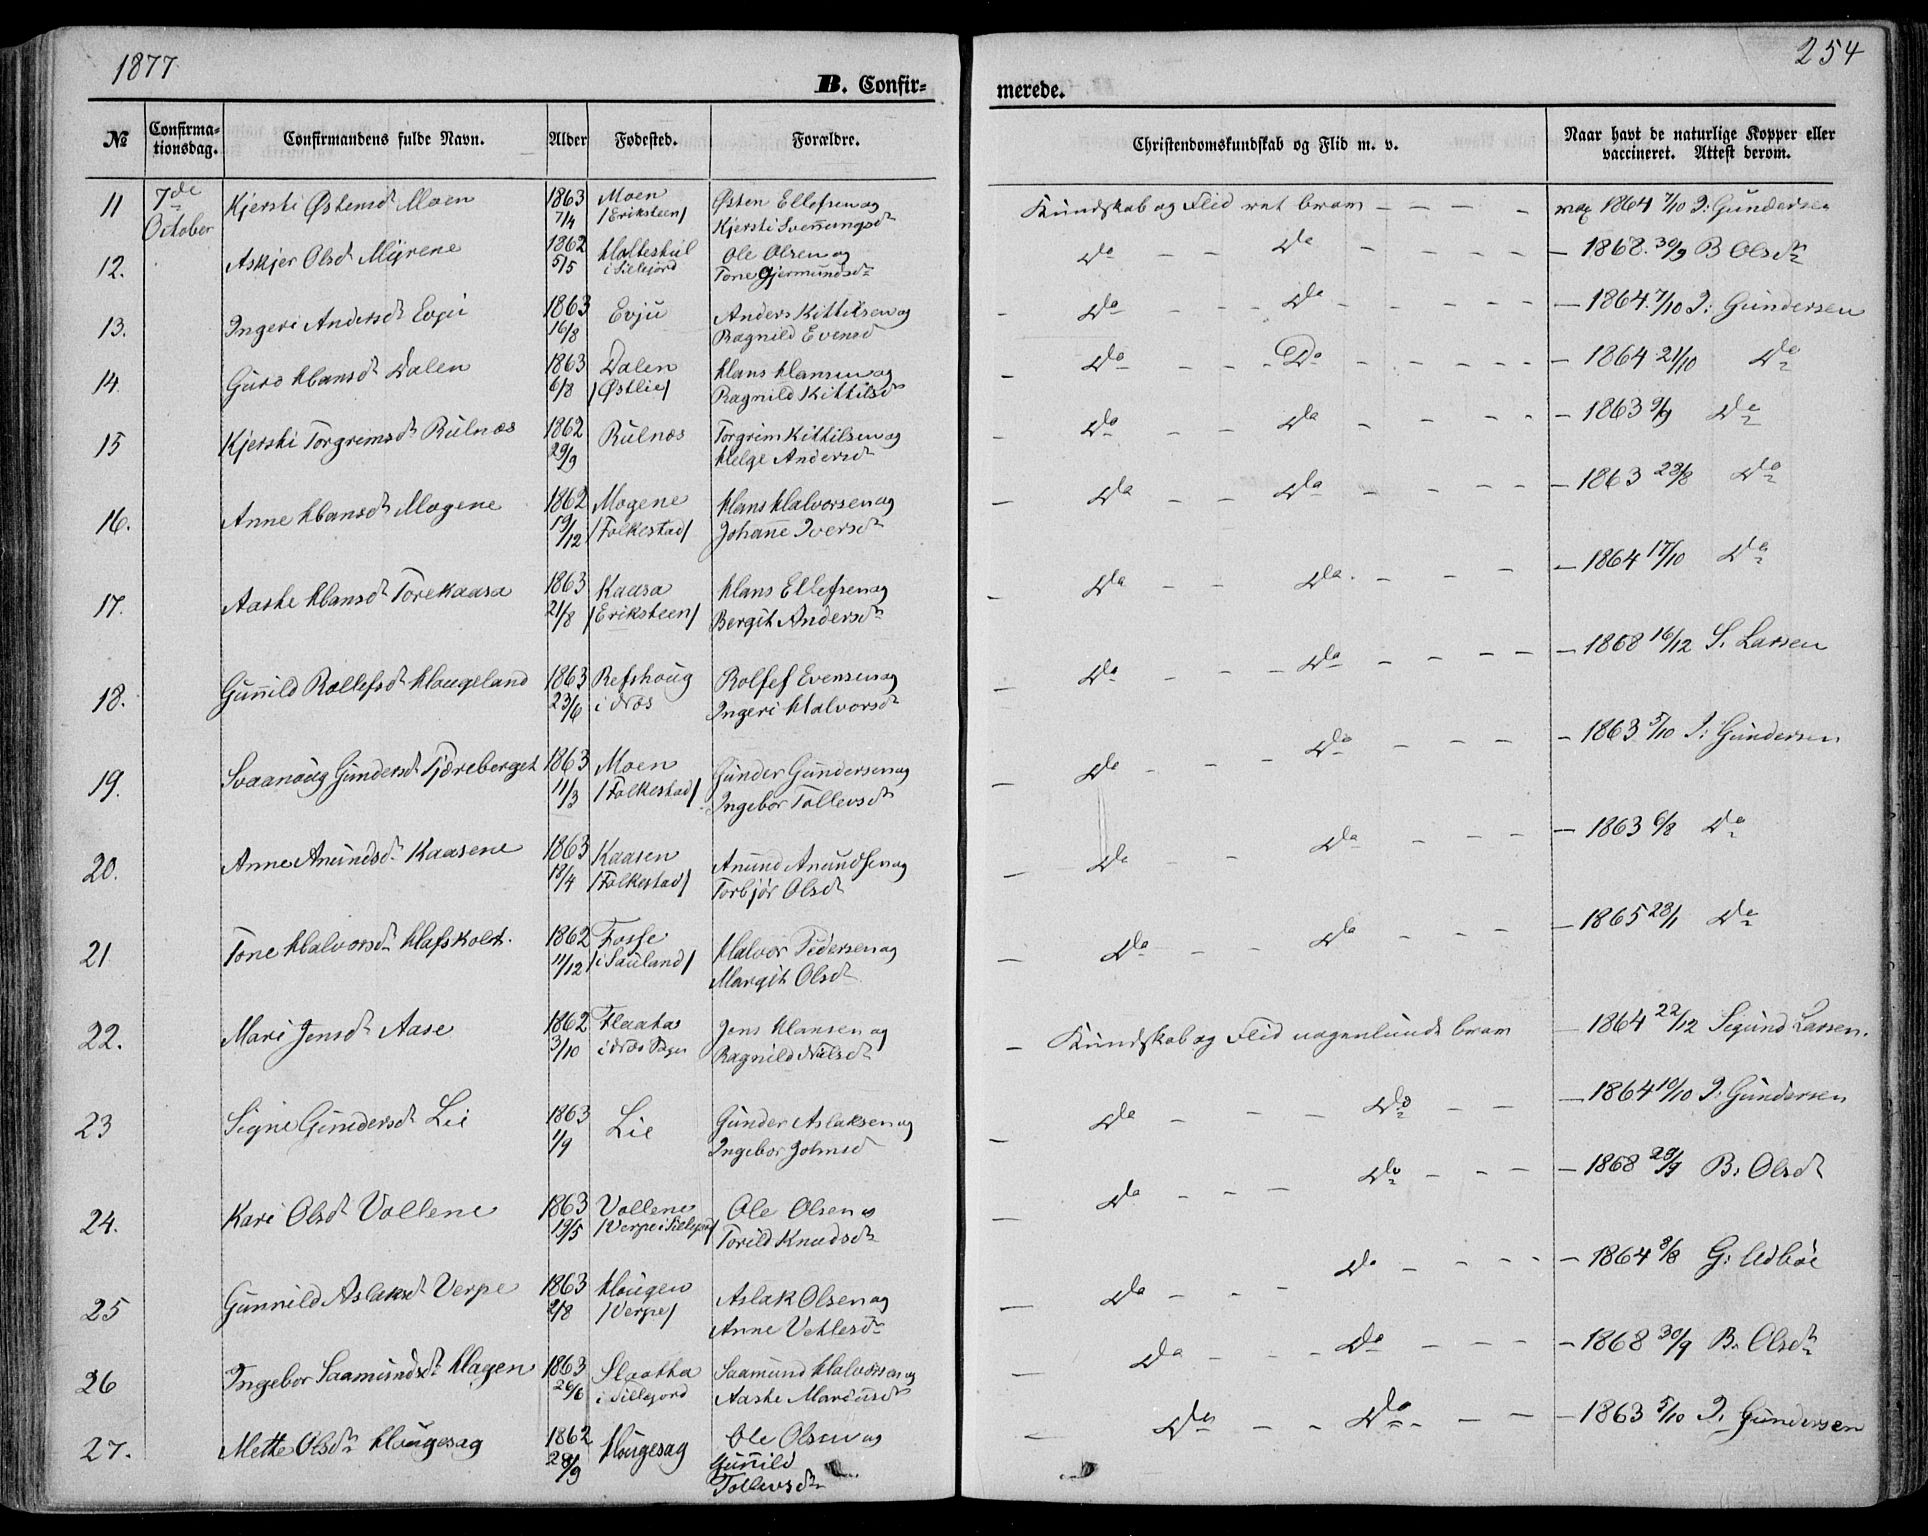 1877
254
B. Confir-
merede.
№ Confirma-tionsdag. Confirmandens fulde Navn. Alder Fødested. Forældre. Christendomskundskab og Flid m. v. Naar havt de naturlige Kopper eller vaccineret. Attest derom.
11 7de October Kjersti Østensdt Moen 1863 7/4 Moen /Eriksteen/ Østen Ellefsen og Kjersti Svenungsdt Kundskab og Flid ret bram - - - - vax 1864 7/10 I: Gundersen
12. Askjer Olsdt Myrene 1862 5/5 i Sillejord Ole Olsen og Tone Gjermundsdt Do - - Do - - - - - 1868 30/9 B Olsdtr
13. Ingeri Andersdt Evju 1863 16/8 Evju Anders Kittilsen og Ragnild Evensd - Do - - - Do - - - - - 1864 7/10 I: Gundersen
14. Guro Hansdt Dalen 1863 6/8 Dalen /Østlie/ Hans Hansen og Ragnild Kittilsdt - Do - - - Do - - - - - 1864 21/10 Do
15 Kjersti Torgrimsdt Rulnæs 1862 29/9 Rulnæs Torgrim Kittilsen og Helge Andersdt - Do - - Do - - - - - 1863 9/9 Do
16. Anne Hansdt Mogene 1862 19/12 Mogene /Folkestad/ Hans Halvorsen og Johane Iversdt - Do - - Do - - - - - 1863 28/8 Do
17. Aaste Hansdt Torekaasa 1863 21/8 Kaasa /Eriksteen/ Hans Ellefsen og Bergit Andersdt - Do - - Do. - - - - 1864 17/10 Do
18. Gunild Rollefsdt Haugeland 1863 23/6 Refshoug i Næs Rolfef Evensen og Ingeri Halvorsdt - Do - - - Do - - - - - 1868 16/12 S. Lassen
19. Svaanoug Gundersdt Tjæreberget 1863 11/3 Moen /Folkestad/ Gunder Gundersen og Ingebor Tollevsdt - Do - - - Do - - - - 1863 5/10 I: Gundersen
20. Anne Anundsdt Kaasene 1863 18/4 Kaasen /Folkestad/ Anund Anundsen og Torbjør Olsdt - Do - - Do - - - - 1863 6/8 Do
21 Tone Halvorsdt Hafskolt. 1862 11/12 Fosse /i Sauland/ Halvor Pedersen og Margit Olsdt - Do - - Do - - - - 1865 28/1 Do
22. Mari Jensdt Aase 1862 3/10 Flaata Jens Hansen og Ragnild Nilsdt - Kundskab og Flid nogenlunde bram - 1864 22/12 Sigund Lassen.
23 Signe Gundersdt Lie 1863 1/9 Lie Gunder Aslaksen og Ingebor Johnsd - Do - - - Do - - - 1864 10/10 I: Gundersen
24. Kari Olsdt Vallene 1863 19/5 Vallene /Verpe i Sillejord/ Ole Olsen og Torild Knudsdt - Do - - - Do - - - - 1868 28/9 B: Olsdt
25 Gunnild Aslaksdt Verpe 1863 2/8 Hougen /Verpe/ Aslak Olsen og Anne Vetlesdt - Do - - - Do - - - - - 1864 8/8 G: Udbøe
26 Ingebor Saamundsdt Hagen 1863 26/6 Slaatha i Sillejord Saamund Halvorsen og Aaste Mariusdt - Do - - - Do - - - - 1868 30/9 B. Olsdtr
27. Mette Olsdt Hougesag 1862 28/9 Hougesag Ole Olsen og Gunild Tollevsdt - Do - - Do - - - 1863 5/10 I. Gundersen